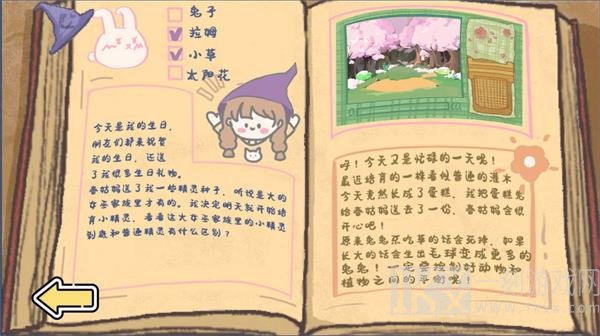 兔子
拉姆
小草
太阳花
今天是我的生日，
朋友们都来祝贺
我的生日，还送
了我很多生日礼物。
春姑妈送了我一些精灵种子，听说是大的
女巫家族里才有的。我决定明天就开始培
育小精灵，看看这大女巫家族里的小精灵
到底和普通精灵有什么区别？
呼！今天又是忙碌的一天呢！
最近培育的一棵看似普通的灌木
今天竟然长成了蛋糕，我把蛋糕兔
给春姑妈送去了一份，春姑妈会很
开心吧！
原来兔兔不吃草的话会死掉，如果
长大的话会生出毛球变成更多的
兔兔！一定要控制好动物和
植物之间的平衡呢！